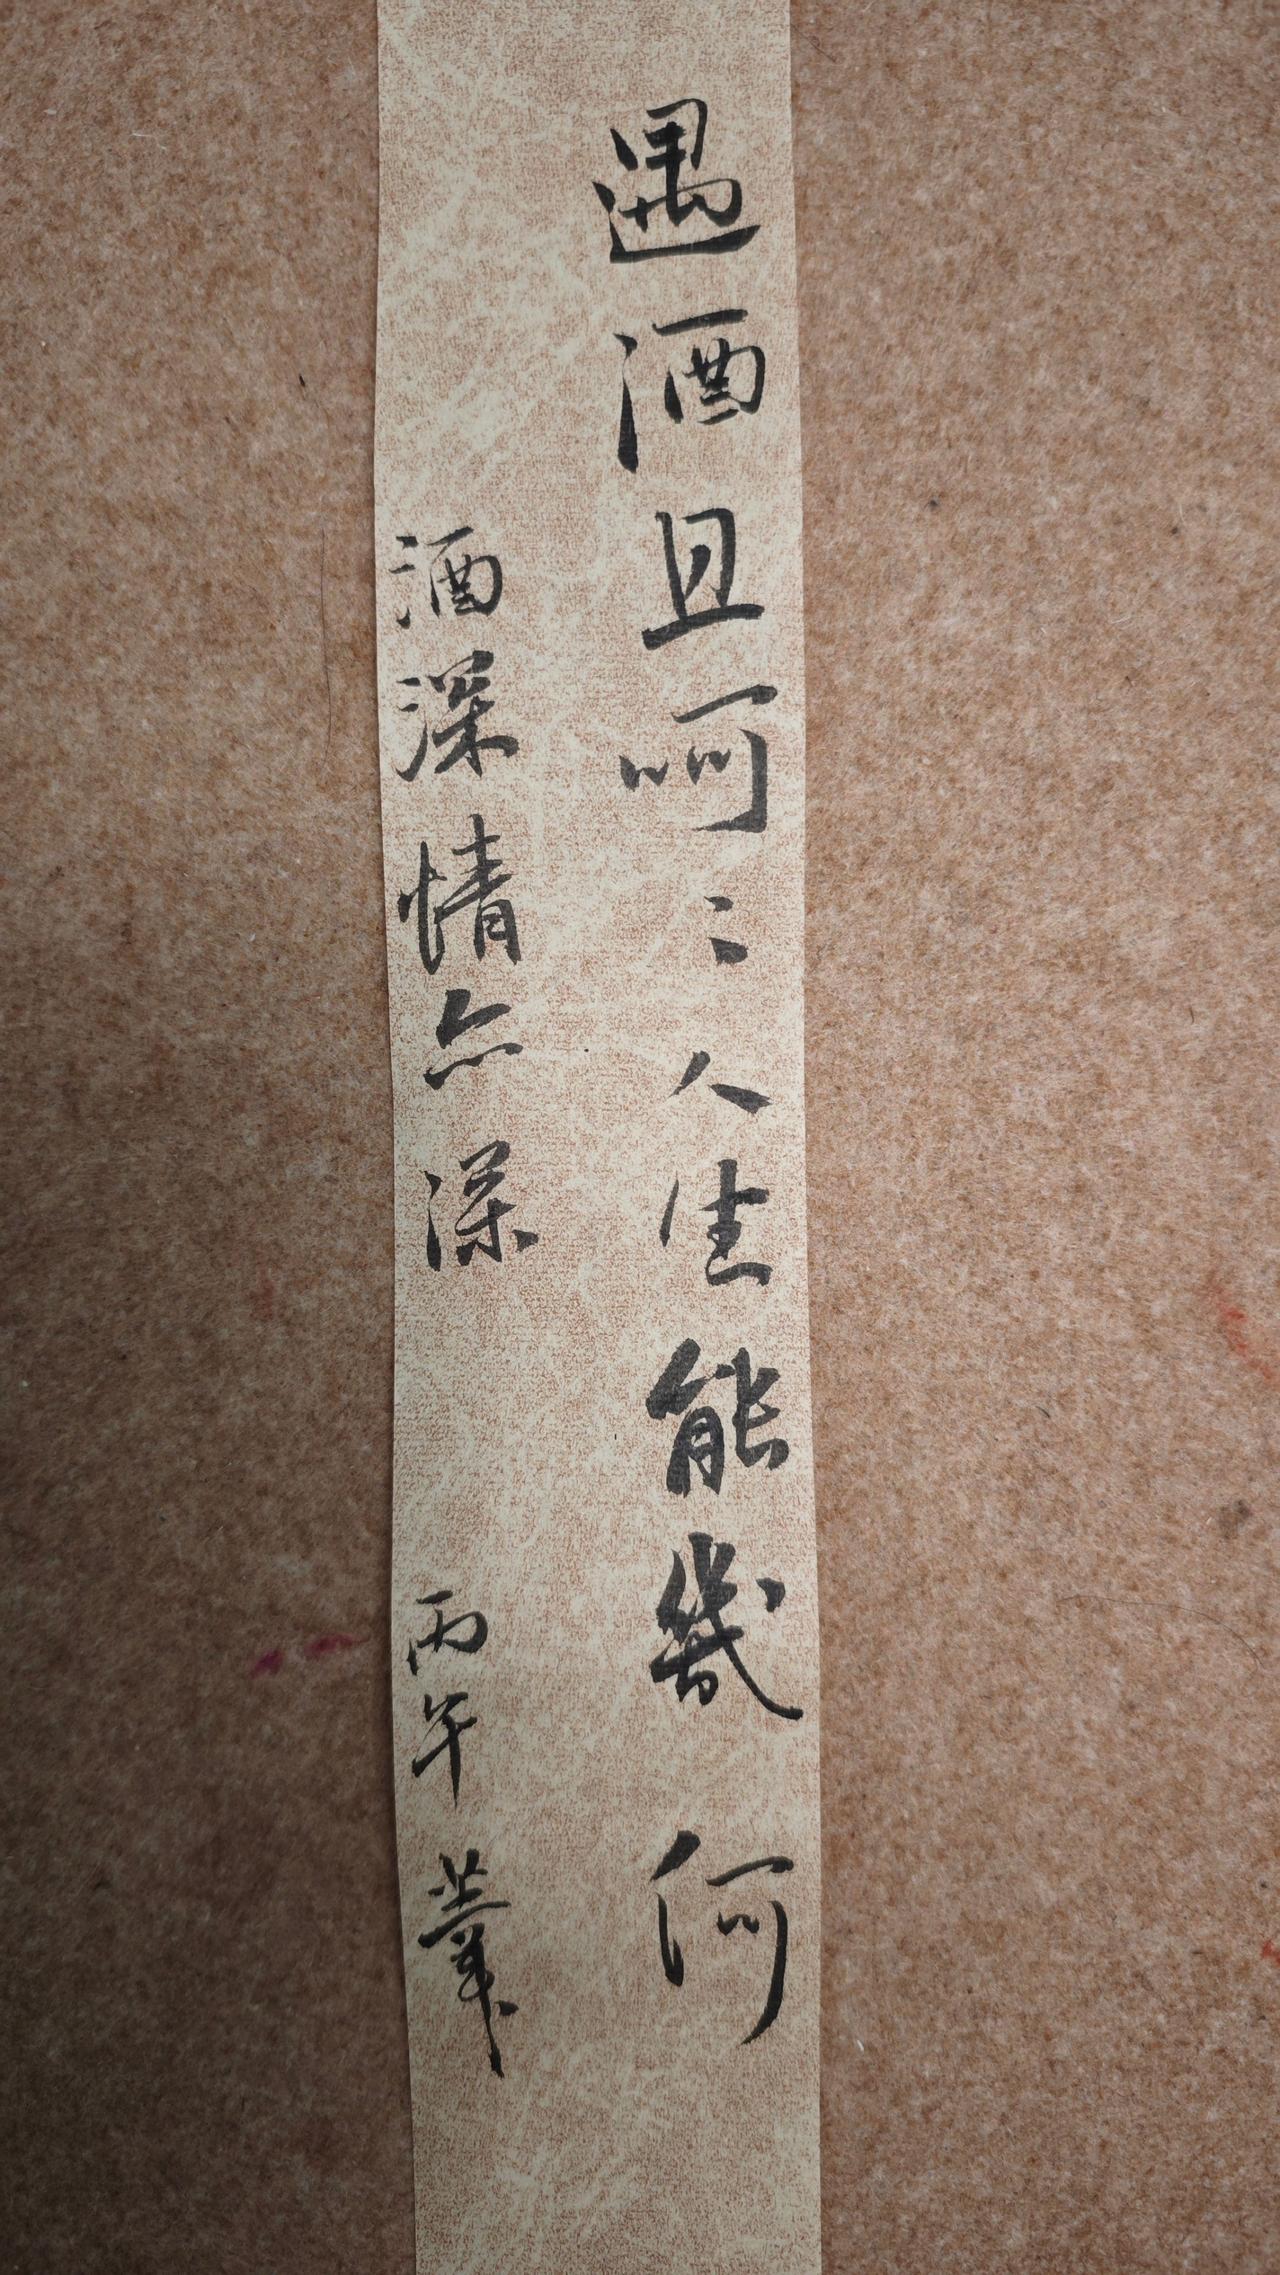 遇酒且呵〻人生能幾何
酒深情亦深
丙午